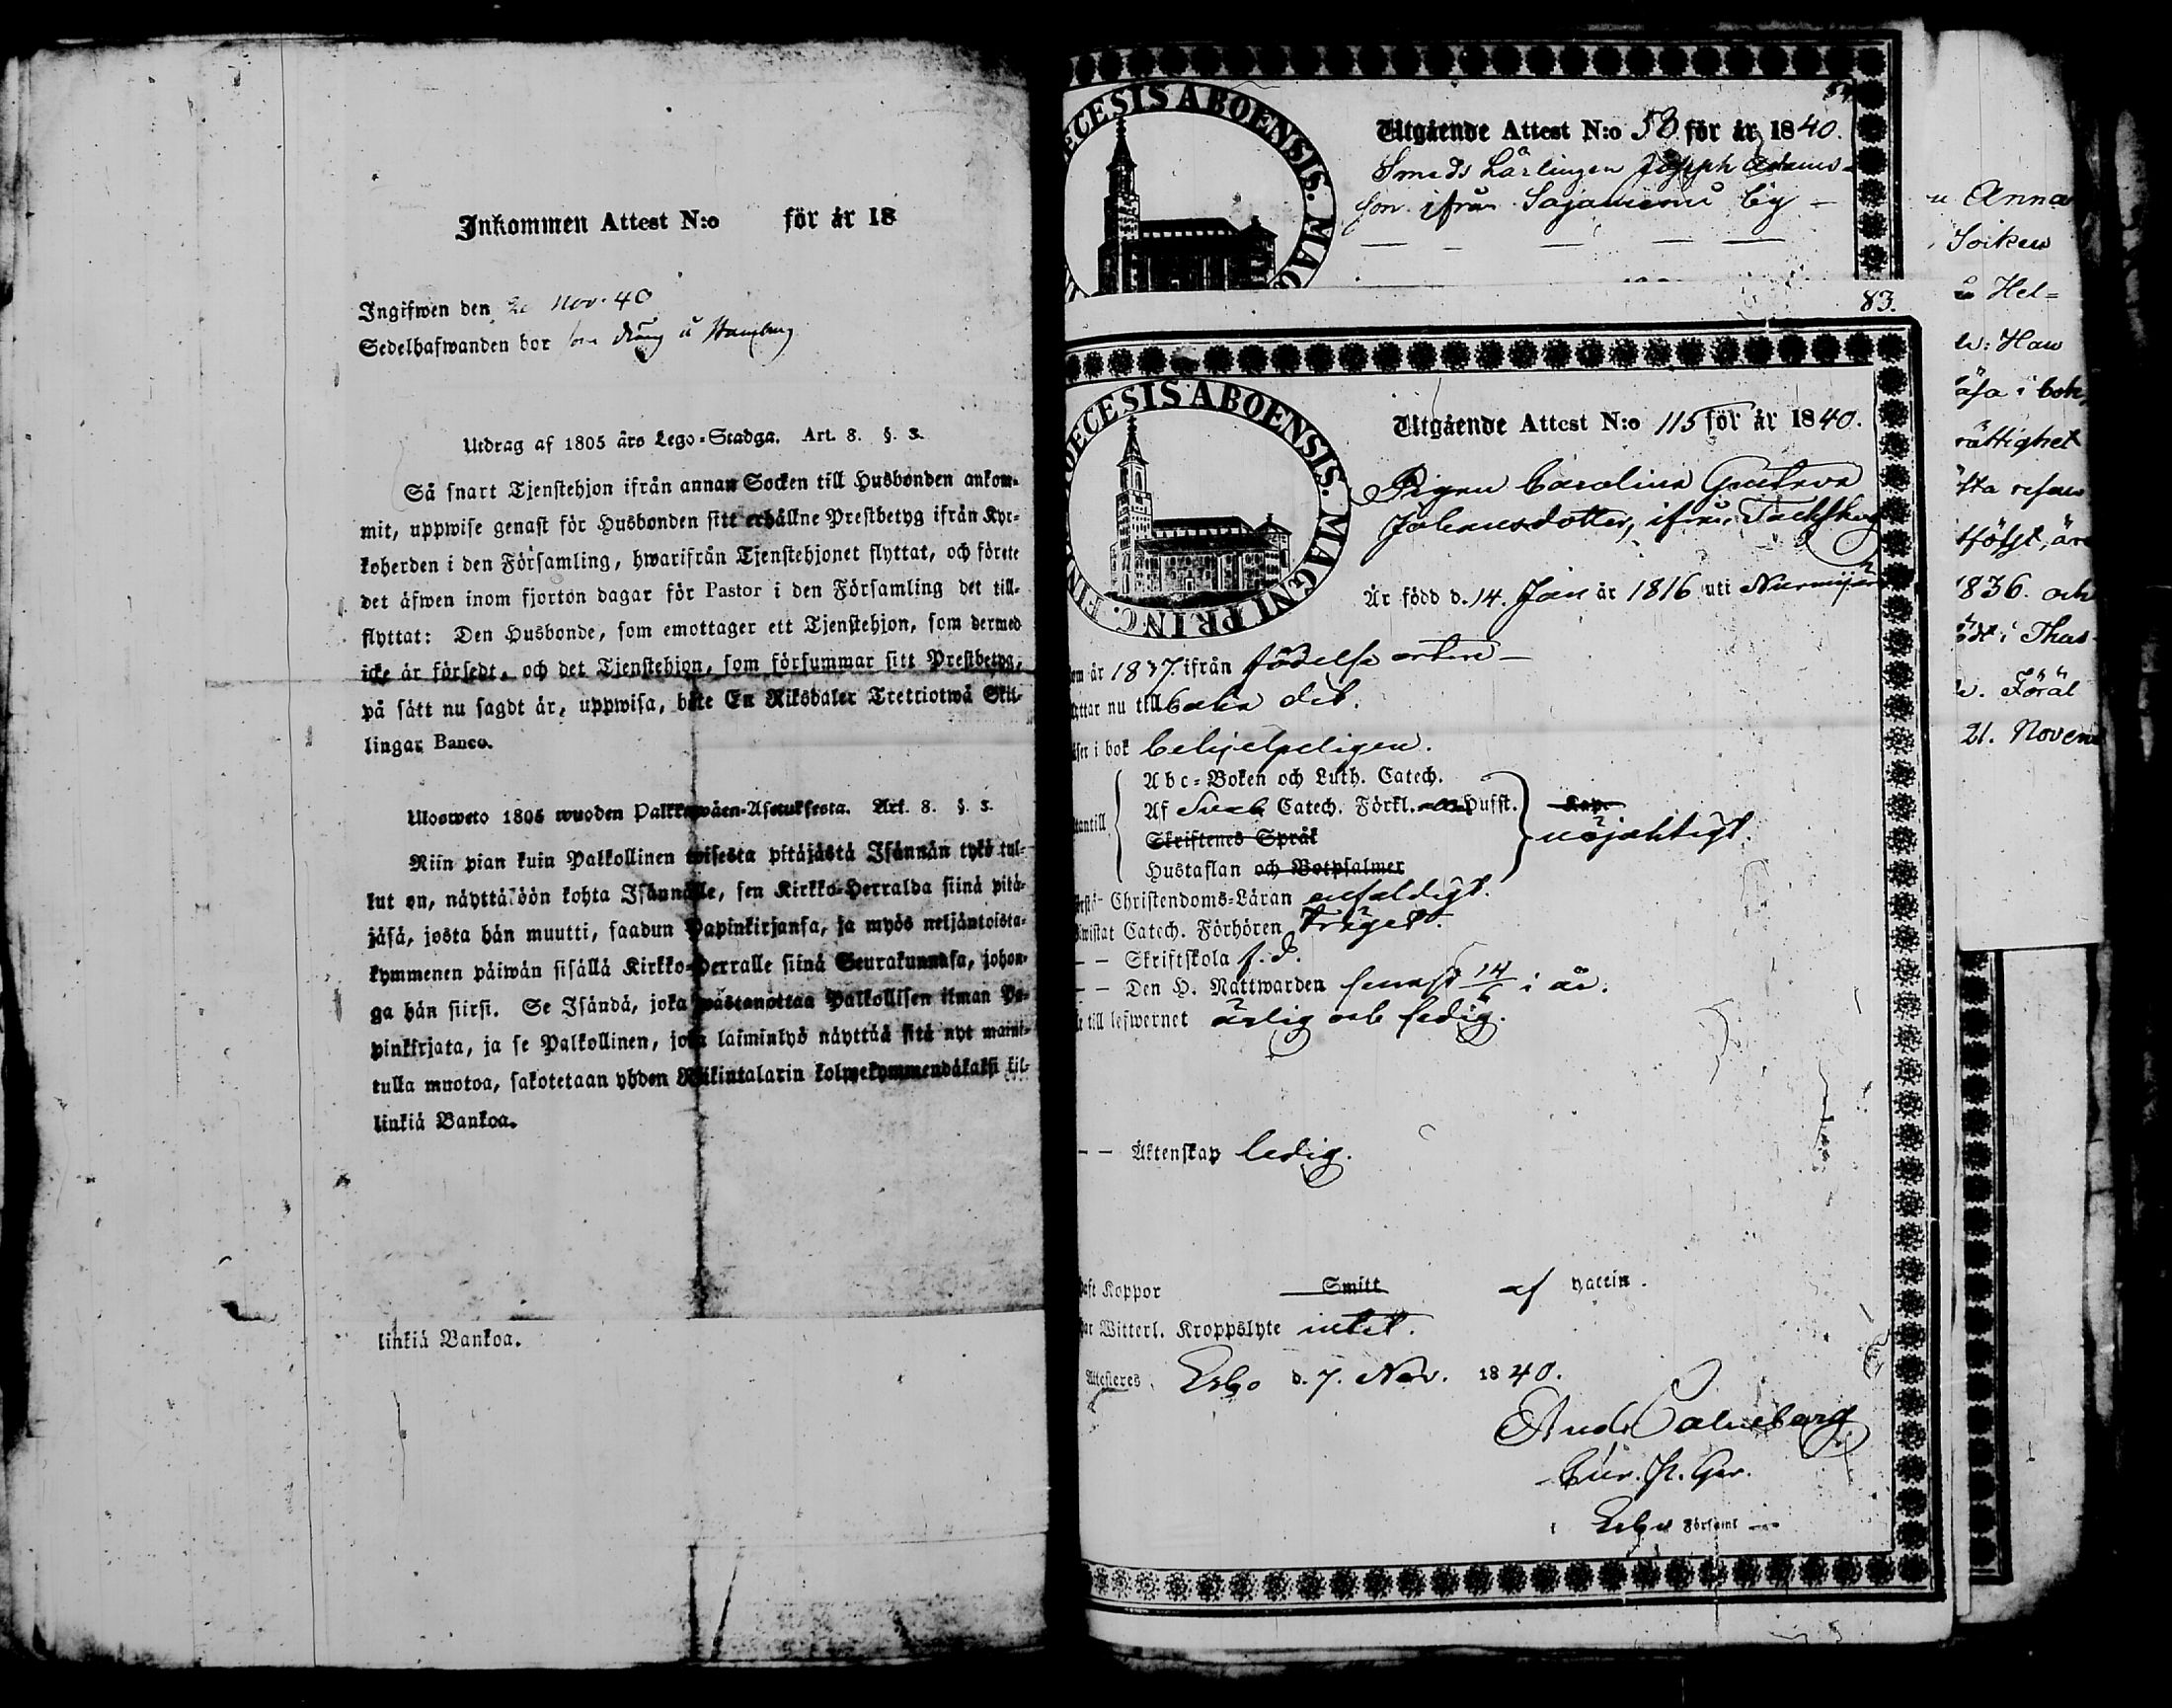 Inkommen Attest N:o för år 18
Ingifwen den Nov. 40
Sedelhafwanden bor
Utdrag af 1805 års Lego-Stadga. Art. 8. §. 3.
Så snart Tjenstehjon ifrån annan Socken till Husbonden ankom-
mit, uppwise genast för Husbonden sitt erhållne Prestbetyg ifrån Kyr-
koherden i den Församling, hwarifrån Tjenstehjonet flyttat, och förete
det äfwen inom fjorton dagar för Pastor i den Församling det till-
flyttat: Den Husbonde, som emottager ett Tjenstehjon, som dermed
icke är försedt, och det Tjenstehjon, som försummar sitt Prestbetyg,
på sätt nu sagdt är, uppwisa, böte En Riksdaler Trettiotwå Skil-
lingar Banco.
Ulosweto 1805 wuoden Palkkawäen-Asetuksesta. Art. 8. §. 3.
Niin pian kuin Palkollinen toisesta pitäjästä Isännän tykö tul-
lut on, näyttäköön kohta Isännälle, sen Kirkko-Herralda siinä pitä-
jäsä, josta hän muutti, saadun Papinkirjansa, ja myös neljäntoista-
kymmenen päiwän sisällä Kirkko-Herralle siinä Seurakunnasa, johon-
ga hän siirsi. Se Isändä, joka wastanottaa Palkollisen ilman Pa-
pinkirjata, ja se Palkollinen, joka laiminlyö näyttää sitä nyt maini-
tulla muotoa, sakotetaan yhden Riikintalarin kolmekymmendäkaksi kil-
linkiä Bankoa.
linkiä Bankoa.
ECESIS ABOENSIS. MAG
Utgående Attest N:o 58 för år 1840.
Smeds Lärlingen Joseph Adams-
son ifrån by
83.
DIOECESIS ABOENSIS. MAGNI PRINC. FIN
Utgående Attest N:o 115 för år 1840.
Pigan Carolina Gustava
Johansdotter, ifrån Tackskog
Är född d. 14. Jan år 1816 uti Nurmijärvi
om år 1837. ifrån födelse orten
yttar nu till baka dit.
äser i bok behjelpeligen.
Abc-Boken och Luth. Catech.
Af Sveb Catech. Förkl. Husst.
utantill Skriftenes Språk nöjaktigt.
Hustaflan och Botpsalmer
Förstå- Christendoms-Läran enfaldigt.
ewistat Catech. Förhören trägit.
— — Skriftskola f. d.
— — Den H. Nattwarden senast 14 i år.
r till lefwernet ärlig och sedig.
— — Äktenskap ledig.
aft Koppor Smitt af vaccin.
ar Witterl. Kroppslyte intet.
Attesteres Esbo d. 7. Nov. 1840.
And. Palmeberg
i Esbo Församl
Anna
Soiken
Hel=
Haw
äsa i bok,
rättighet
sta resan
1836. och
ödt i Thus-
Föräl
21. Novem